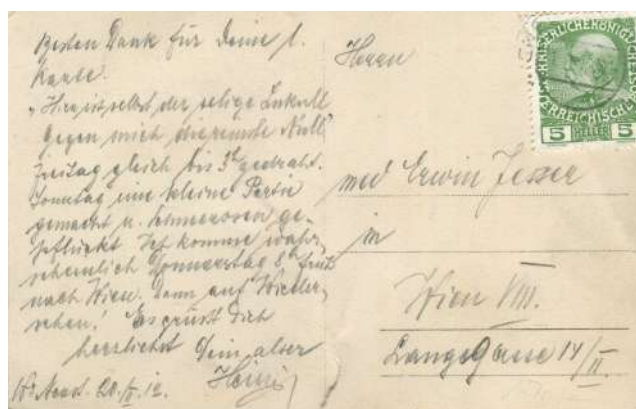 Besten Dank für Deine l.
Karte.
"Hier ist selbst der selige Lukull
gegen mich die reinste Null"
Freitag gleich bis 3h gedraht.
Sonntag eine kleine Partie
gemacht u. ge-
pflückt. Ich komme wahr-
scheinlich Donnerstag 8h früh
nach Wien. Dann auf Wieder-
sehen! Es grüsst Dich
herzlichst Dein alter
Heini
Wr. Neust. 20./V. 12.
Herrn
med Erwin Jesser
in
Wien VIII.
Lange Gasse 14/II.
5 HELLER 5